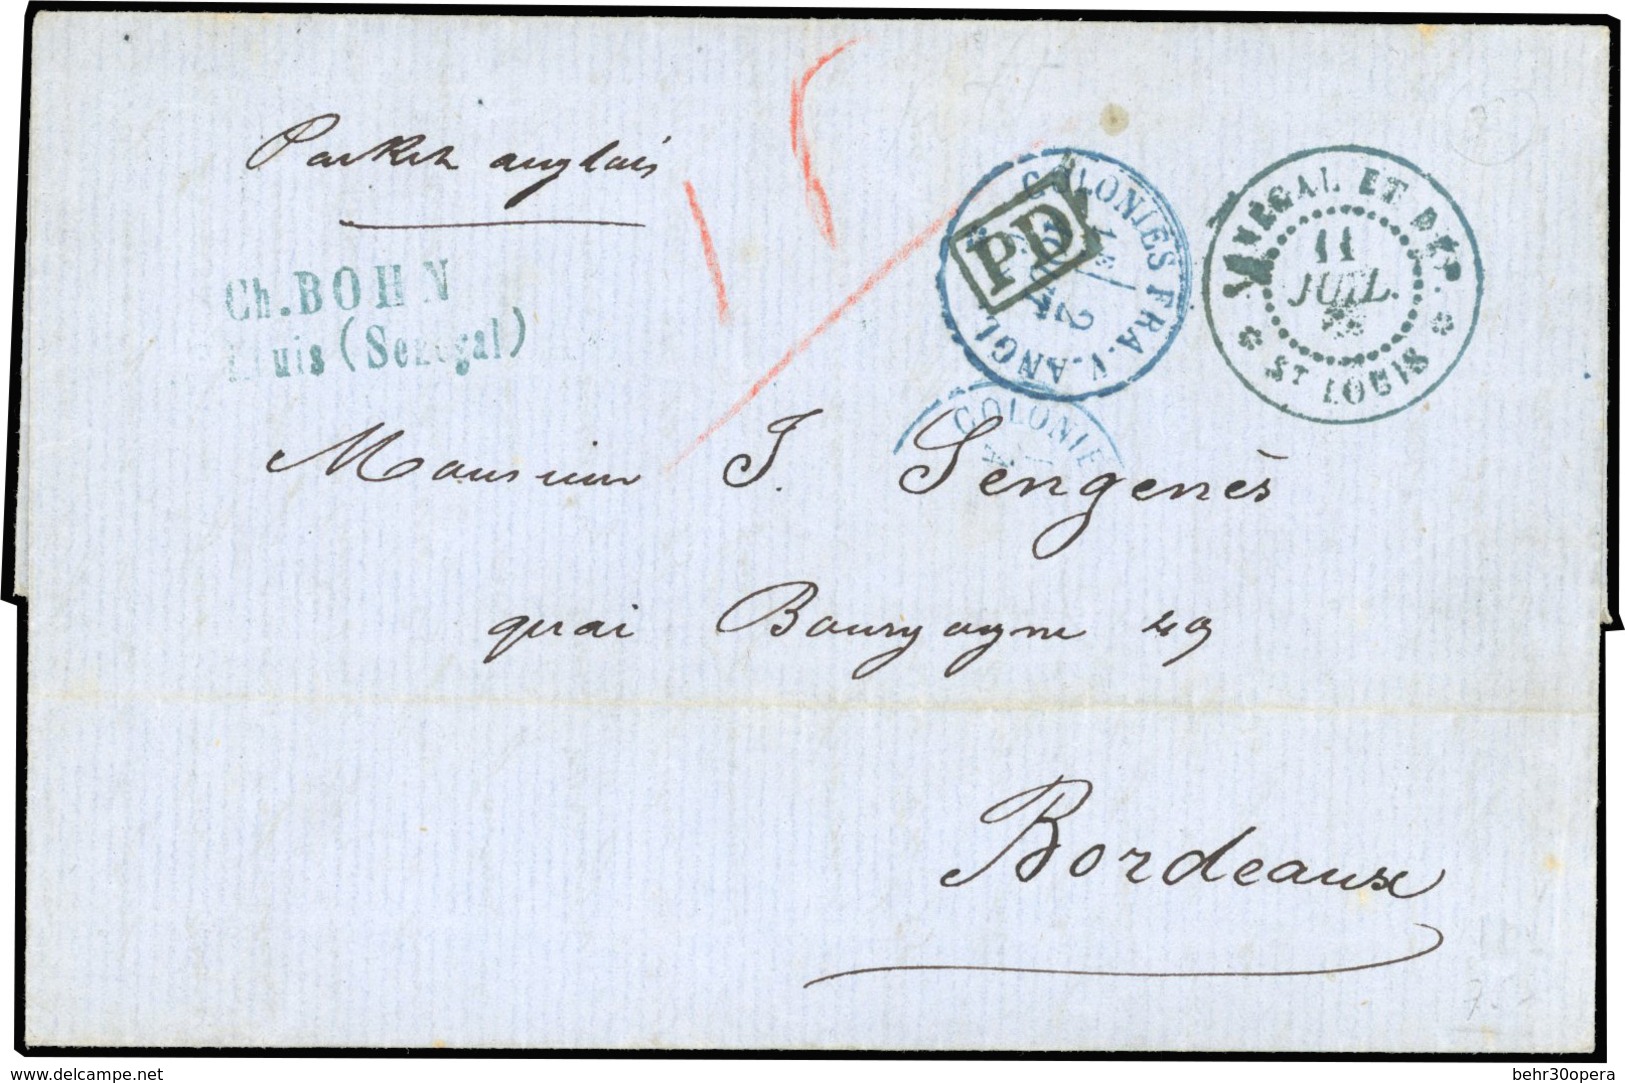 Packet anglais
15
PD
COLONIES FRA. V. ANGL.
SÉNÉGAL ET DÉP.
11
JUIL.
ST LOUIS
Ch. BOHN
Louis (Senegal)
COLONIE
Monsieur J. Sengenès
quai Bourgogne 49
Bordeaux
www.delcampe.net
behr30opera